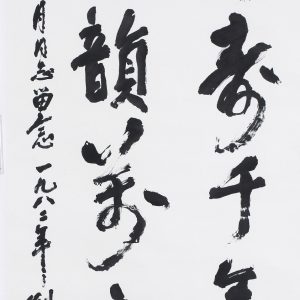 寿千年
韻万
月月志留念一九八二年